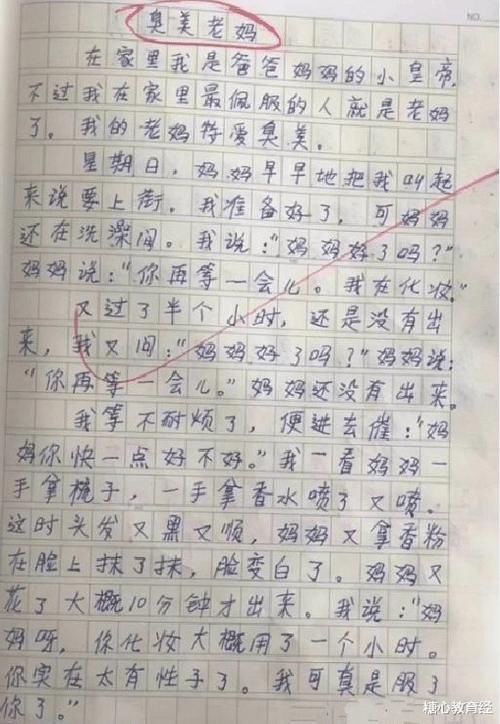 NO.
臭美老妈
在家里我是爸爸妈妈的小皇帝,
不过我在家里最佩服的人就是老妈
了。我的老妈特爱臭美。
星期日,妈妈早早地把我叫起
来说要上街。我准备好了,可妈妈
还在洗澡间。我说:“妈妈好了吗?”
妈妈说:“你再等一会儿。我在化妆。”
又过了半个小时,还是没有出
来,我又问:“妈妈好了吗?”妈妈说:
“你再等一会儿。”妈妈还没有出来。
我等不耐烦了,便进去催:“妈
妈你快一点好不好。”我一看妈妈一
手拿梳子,一手拿香水喷了又喷。
这时头发又黑又顺,妈妈又拿香粉
在脸上抹了抹,脸变白了。妈妈又
花了大概10分钟才出来。我说:“妈
妈呀,你化妆大概用了一个小时。
你实在太有性子了。我可真是服了
你了。”
糖心教育经